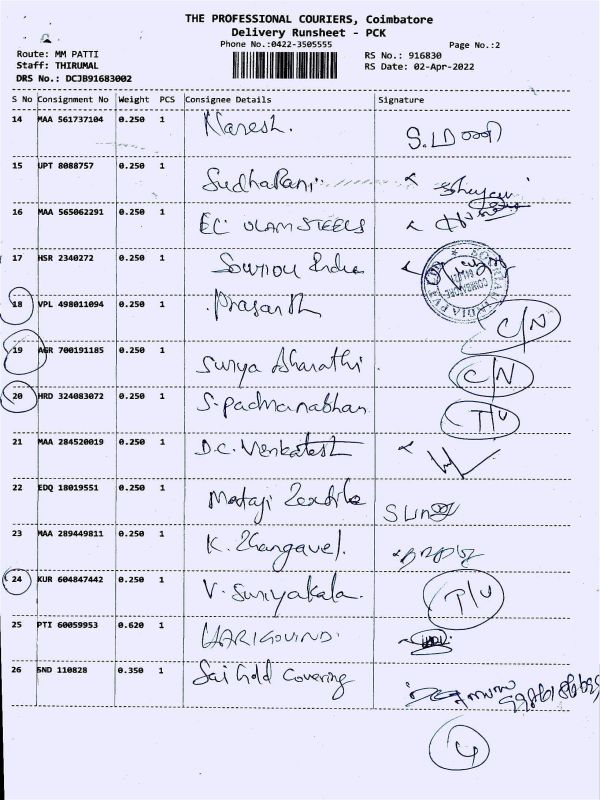 THE PROFESSIONAL COURIERS, Coimbatore
Delivery Runsheet - PCK
Phone No.:0422-3505555
Page No.:2
Route: MM PATTI
RS No.: 916830
Staff: THIRUMAL
RS Date: 02-Apr-2022
DRS No.: DCJB91683002
S No Consignment No Weight PCS Consignee Details Signature
14 MAA 561737104 0.250 1 Naresh.
15 UPT 8088757 0.250 1 SudhaRani
16 MAA 565062291 0.250 1 EC ULAM STEELS
17 HSR 2340272 0.250 1 India
18 VPL 498011094 0.250 1 Prasanth C/N
19 AGR 700191185 0.250 1 Surya Bharathi C/N
20 HRD 324083072 0.250 1 S. padmanabhan T/U
21 MAA 284520019 0.250 1 D.C. Venkatesh
22 EDQ 18019551 0.250 1 Mataji Textile
23 MAA 289449811 0.250 1 K. Thangavel.
24 KUR 604847442 0.250 1 V. Suriyakala. T/U
25 PTI 60059953 0.620 1 HARIGOVIND.
26 SND 110828 0.350 1 Sai Gold Covering
4